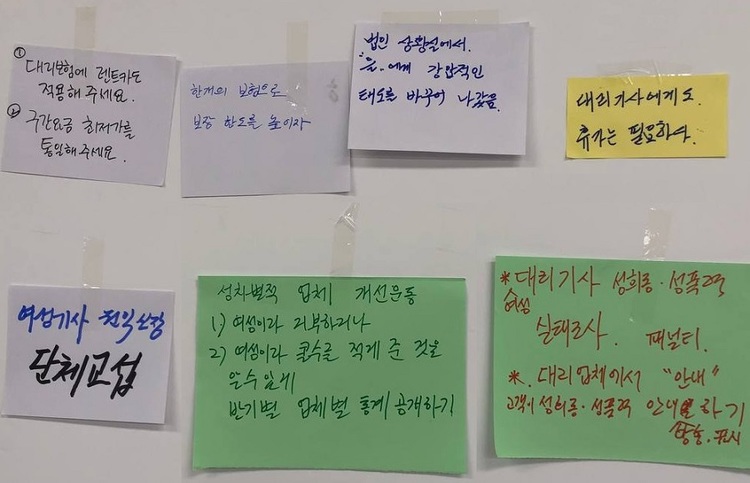 ① 대리보험에 렌트카도
적용해 주세요.
② 구간요금 최저가를
통일해 주세요.
한개의 보험으로
보장 한도를 높이자
법인 상황실에서.
"을"에게 강압적인
태도를 바꾸어 나갔음.
대리기사에게도.
휴가는 필요하다.
여성기사 권익신장
단체교섭
성차별적 업체 개선운동
1.) 여성이라 거부하거나
2) 여성이라 콜수를 적게 준 것을
알수있게
반기별 업체별 통계 공개하기
* 대리기사 성희롱·성폭력
여성
실태조사. 패널티.
*. 대리업체에서 "안내"
고객이 성희롱·성폭력 안내 하기
방송·표시